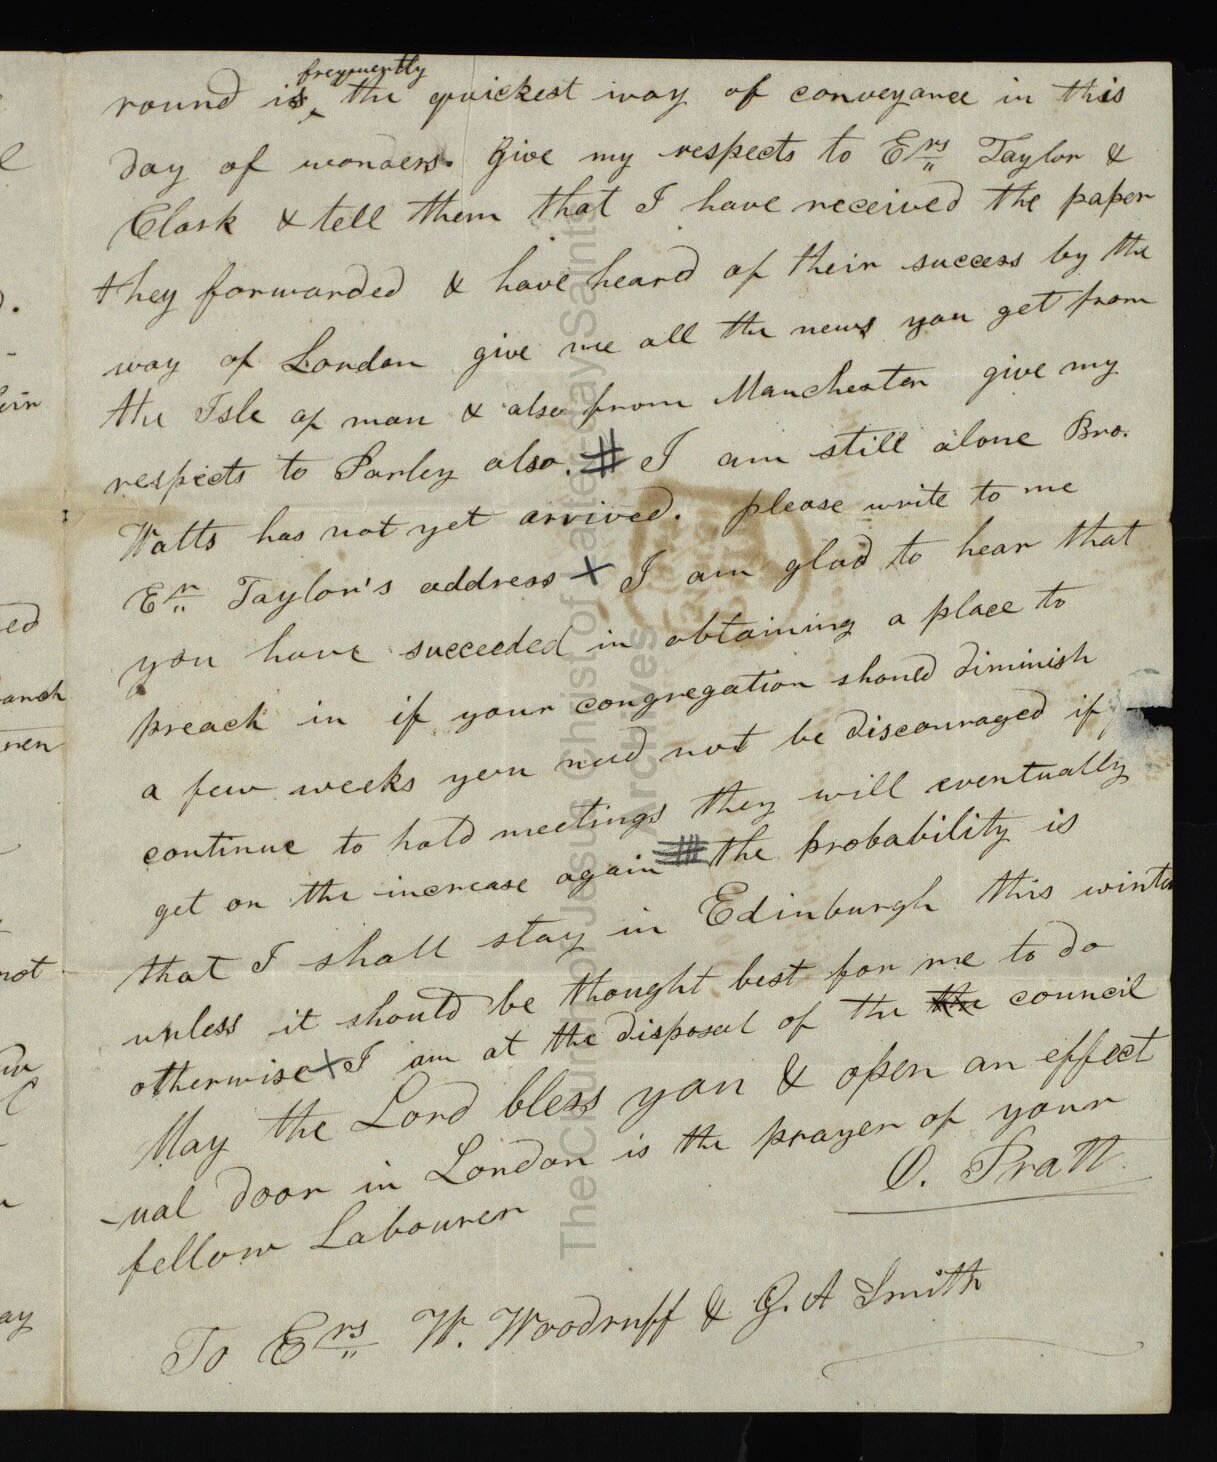 round is frequently the quickest way of conveyance in this
day of wonders. Give my respects to Ers Taylor &
Clark & tell them that I have received the paper
they forwarded & have heard of their success by the
way of London give me all the news you get from
the Isle of man & also from Manchester give my
respects to Parley also. # I am still alone Bro.
Watts has not yet arrived. please write to me
Er Taylor's address X I am glad to hear that
you have succeeded in obtaining a place to
preach in if your congregation should diminish
a few weeks you need not be discouraged if
continue to hold meetings they will eventually
get on the increase again # the probability is
that I shall stay in Edinburgh this winter
unless it should be thought best for me to do
otherwise X I am at the disposal of the the council
May the Lord bless you & open an effect
-ual door in London is the prayer of your
fellow Labourer
O. Pratt.
To Ers W. Woodruff & G. A Smith
The Church of Jesus Christ of Latter-day Saints
Archives